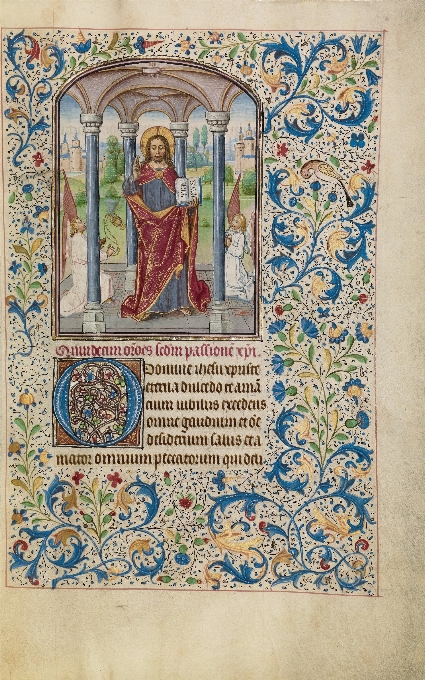 Quindecim orōes scdm passionē xpi.
O Domine ihesu xpriste
eterna dulcedo et amā
cium iubilus excedens
omne gaudium et oē
desiderium salus et a
mator omnium peccatorum qui deli